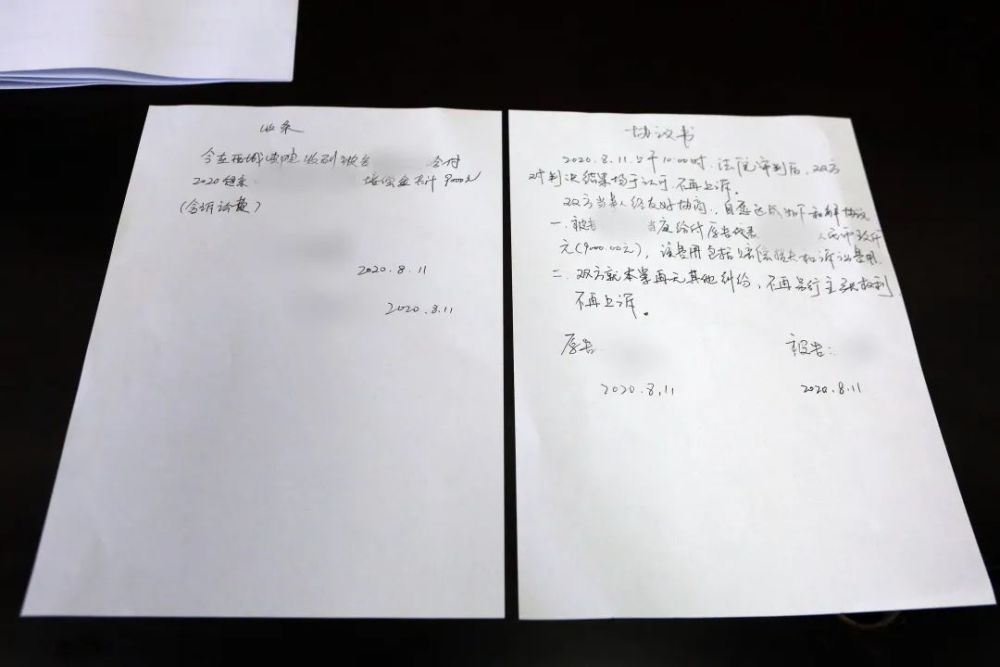 收条
今在西城法院收到被告 交付
2020 赔偿金共计9000元
(含诉讼费)
2020.8.11
2020.8.11
协议书
2020.8.11.上午10:00时，法院审判后，双方
对判决结果均予认可，不再上诉。
双方当事人经友好协商，自愿达成如下和解协议
一、被告 当庭给付原告代表 人民币玖仟
元(9000.00元)，该费用包括赔偿损失和诉讼费用
二、双方就本案再无其他纠纷，不再另行主张权利，
不再上诉。
原告
被告：
2020.8.11
2020.8.11